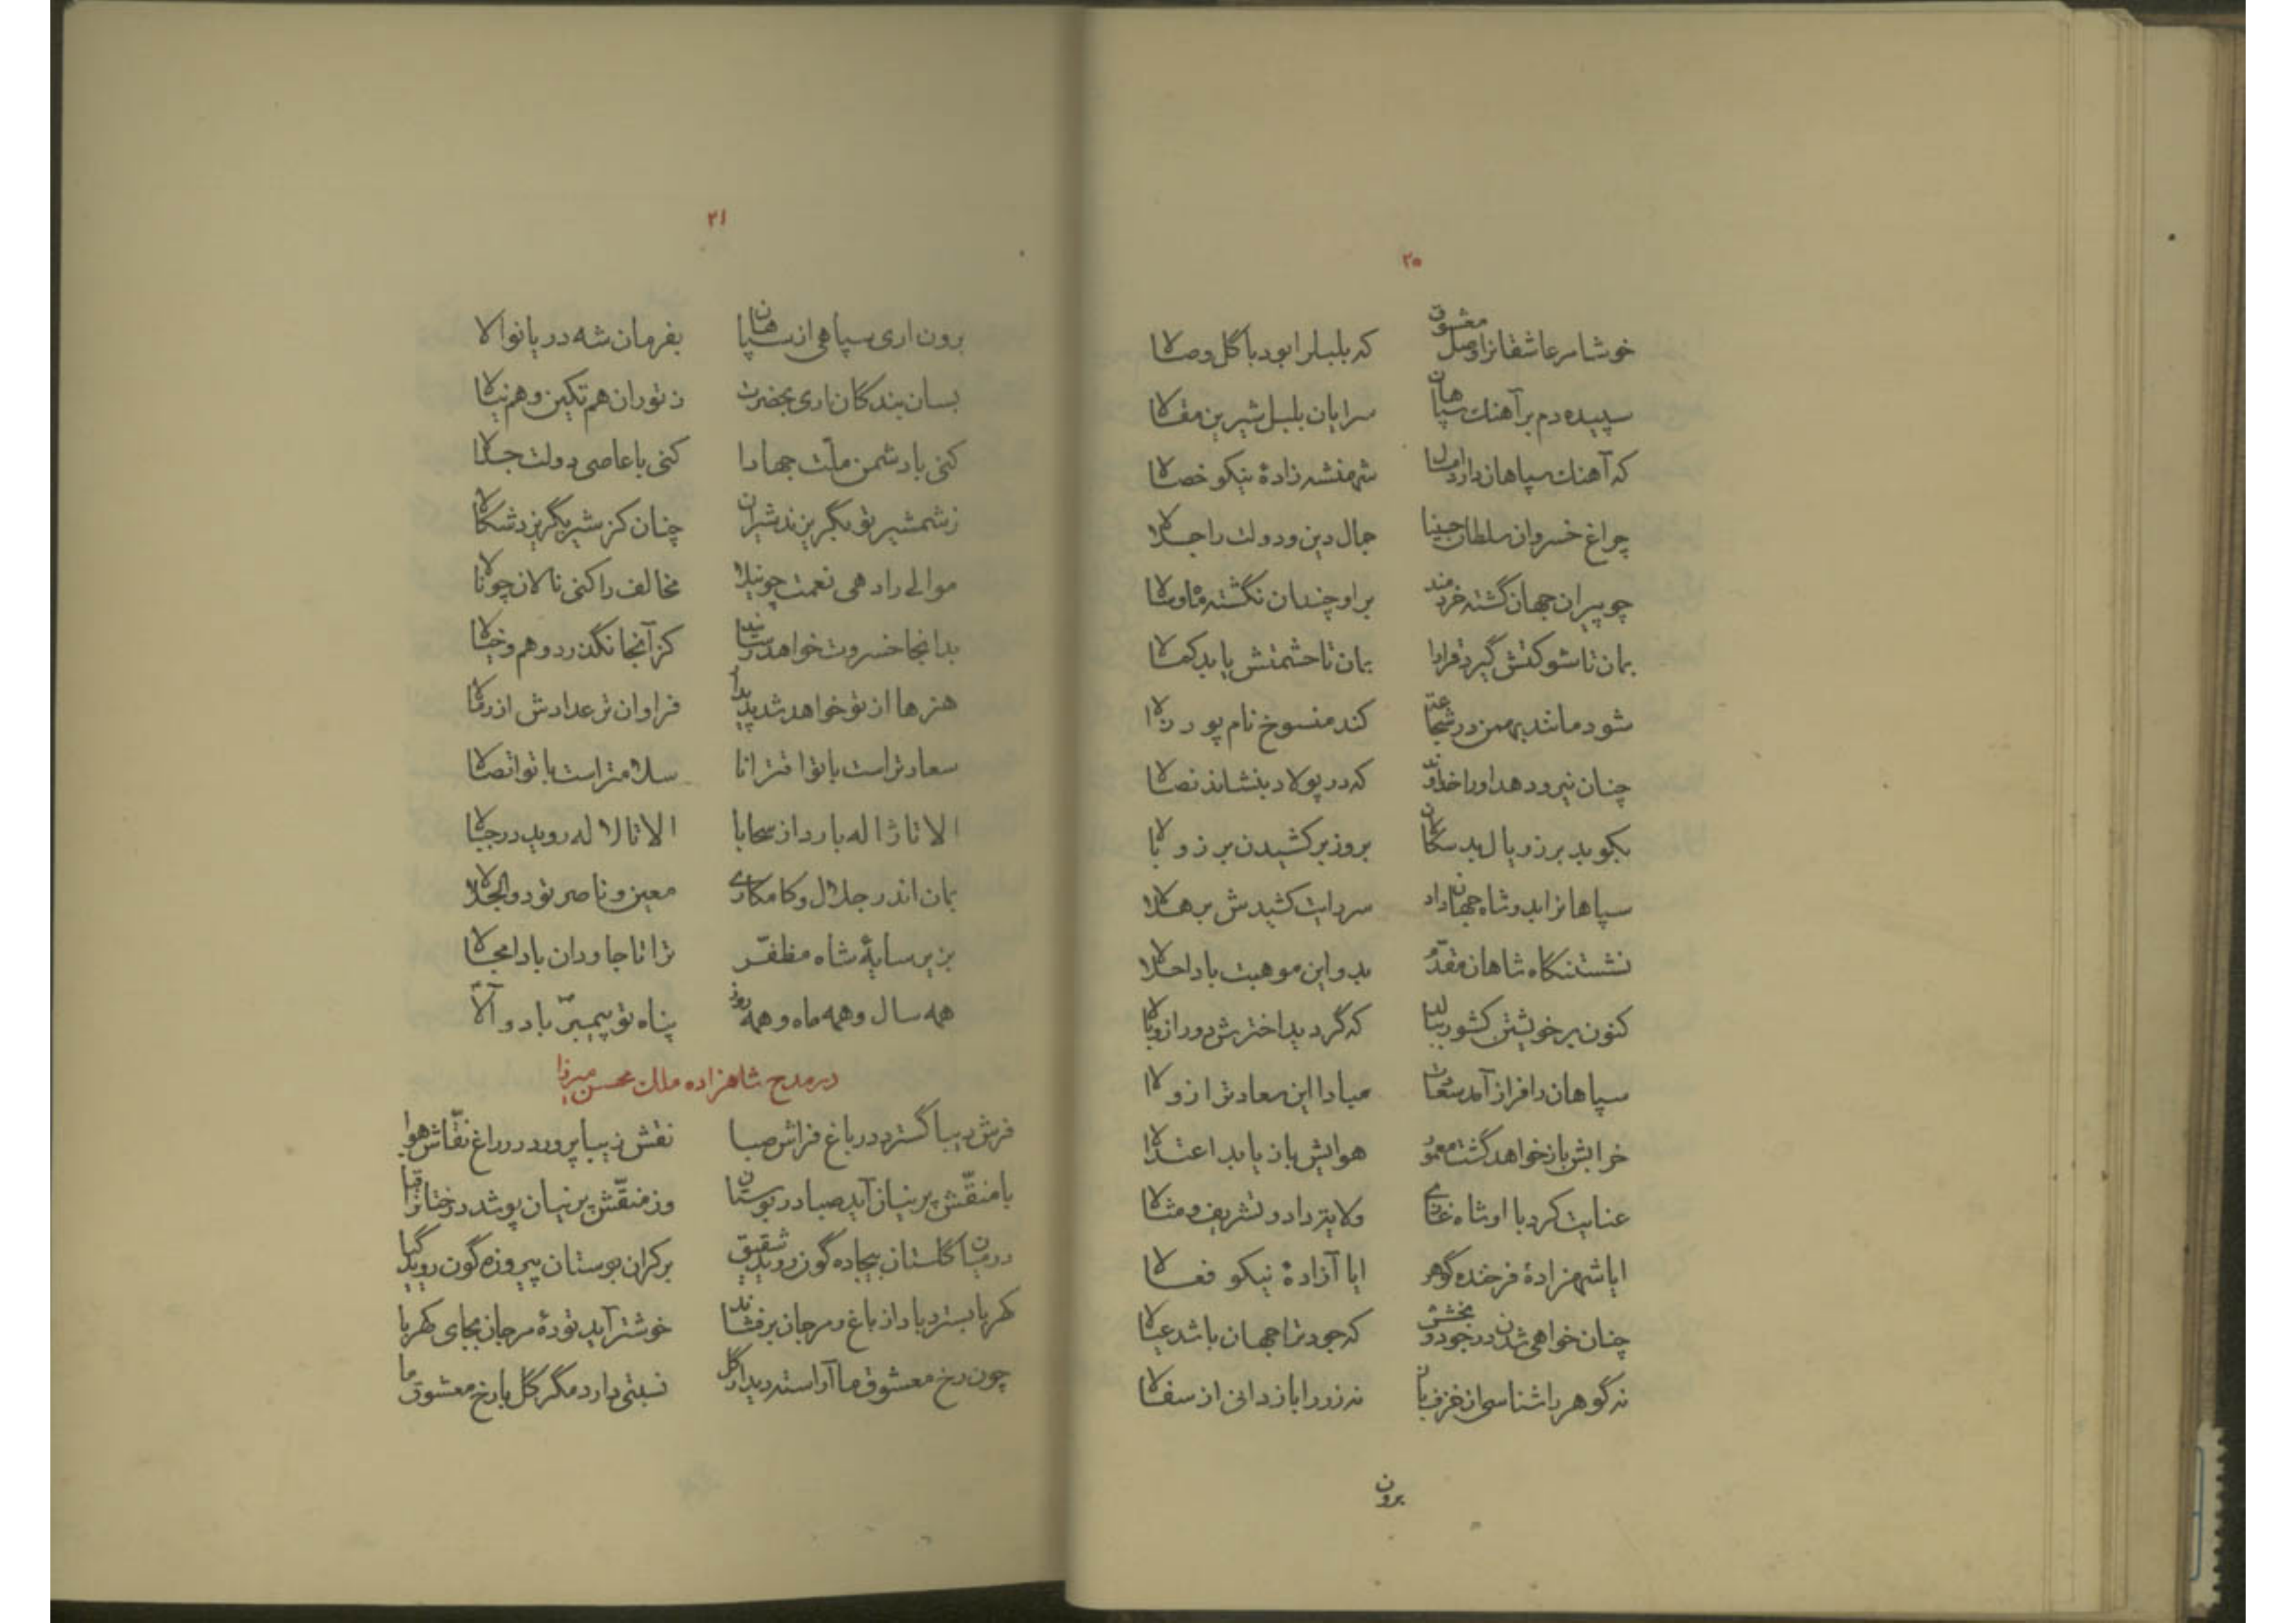 ۲۰
خوشا مر عاشقانرا وصل معشوق که بلبل را بود با گل وصالا
سپیده دم بر آهنك سپاهان سرایان بلبل شیرین مقالا
که آهنك سپاهان دارد امسال شهنشه زادهٔ نیکو خصالا
چراغ خسروان سلطان جمال دین و دولت را جلالا
چو پیران جهان گشته خردمند بر او چندان نگشته ماه و سالا
بمان تا شوکتش گیرد قرارا بمان تا حشمتش یابد کمالا
شود مانند بهمن در شجاعت کند منسوخ نام پور زالا
چنان نیرو دهد او را خداوند که در پولاد بنشاند نصالا
بکوبد برز و یال بدسکالان بروز برکشیدن برز و بالا
سپاهانرا بدو شاه جهان داد سر رایت کشیدش بر هلالا
نشستنگاه شاهان مقدم بدو این موهبت بادا حلالا
کنون بر خویشتن کشور ببالد که گردید اخترش دور از وبالا
سپاهان را فراز آمد سعادت مبادا این سعادترا زوالا
خرابش باز خواهد گشت معمور هوایش باز یابد اعتدالا
عنایت کرد با او شاه غازی ولایت داد و تشریف و مثالا
ایا شهزادهٔ فرخنده گوهر ایا آزادهٔ نیکو فعالا
چنان خواهی شدن در جود و بخشش که جودترا جهان باشد عیالا
نه گوهر را شناسی از خزف باز نه زر را باز دانی از سفالا
برون
۲۱
برون اری سپاهی از سپاهان بفرمان شه دریا نوالا
بسان بندگان اری بحضرت ز توران هم تکین و هم نیالا
کنی با دشمن ملّت جهادا کنی با عاصی دولت جدالا
ز شمشیر تو بگریزند شیران چنان کز شیر بگریزد شکالا
موالی را دهی نعمت چو نیلا مخالف را کنی نالان چو نالا
بدانجا خسروت خواهد رساند کز آنجا نگذرد وهم و خیالا
هنرها از تو خواهد شد پدیدار فراوان تر عدادش از رمالا
سعادتراست با تو اقترانا سلامتراست با تو اتصالا
الا تا ژاله بارد از سحابا الا تا لاله روید در جبالا
بمان اندر جلال و کامکاری معین و ناصر تو ذوالجلالا
بزیر سایهٔ شاه مظفّر ترا تا جاودان بادا مجالا
همه سال و همه ماه و همه روز پناه تو پیمبرّ باد و آلا
در مدح شاهزاده ملك محسن میرزا
فرش دیبا گسترد در باغ فراش صبا نقش زیبا پرورد در راغ نقّاش هوا
با منقّش پرنیان آید صبا در بوستان وز منقّش پرنیان پوشد درختانرا قبا
در میان گلستان بیجاده گون روید شقیق بر کران بوستان پیروزه گون روید گیا
کهربا بسترد باد از باغ و مرجان برفشاند خوشتر آید تودهٔ مرجان بجای کهربا
چون رخ معشوق ما آراسته دیدار گل نسبتی دارد مگر گل با رخ معشوق ما